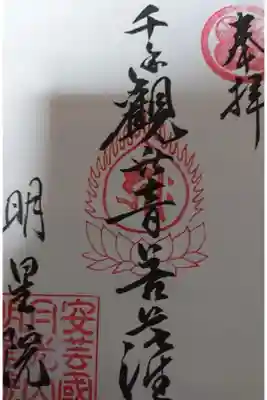 奉拝
千手観音菩薩
明星院
安芸國